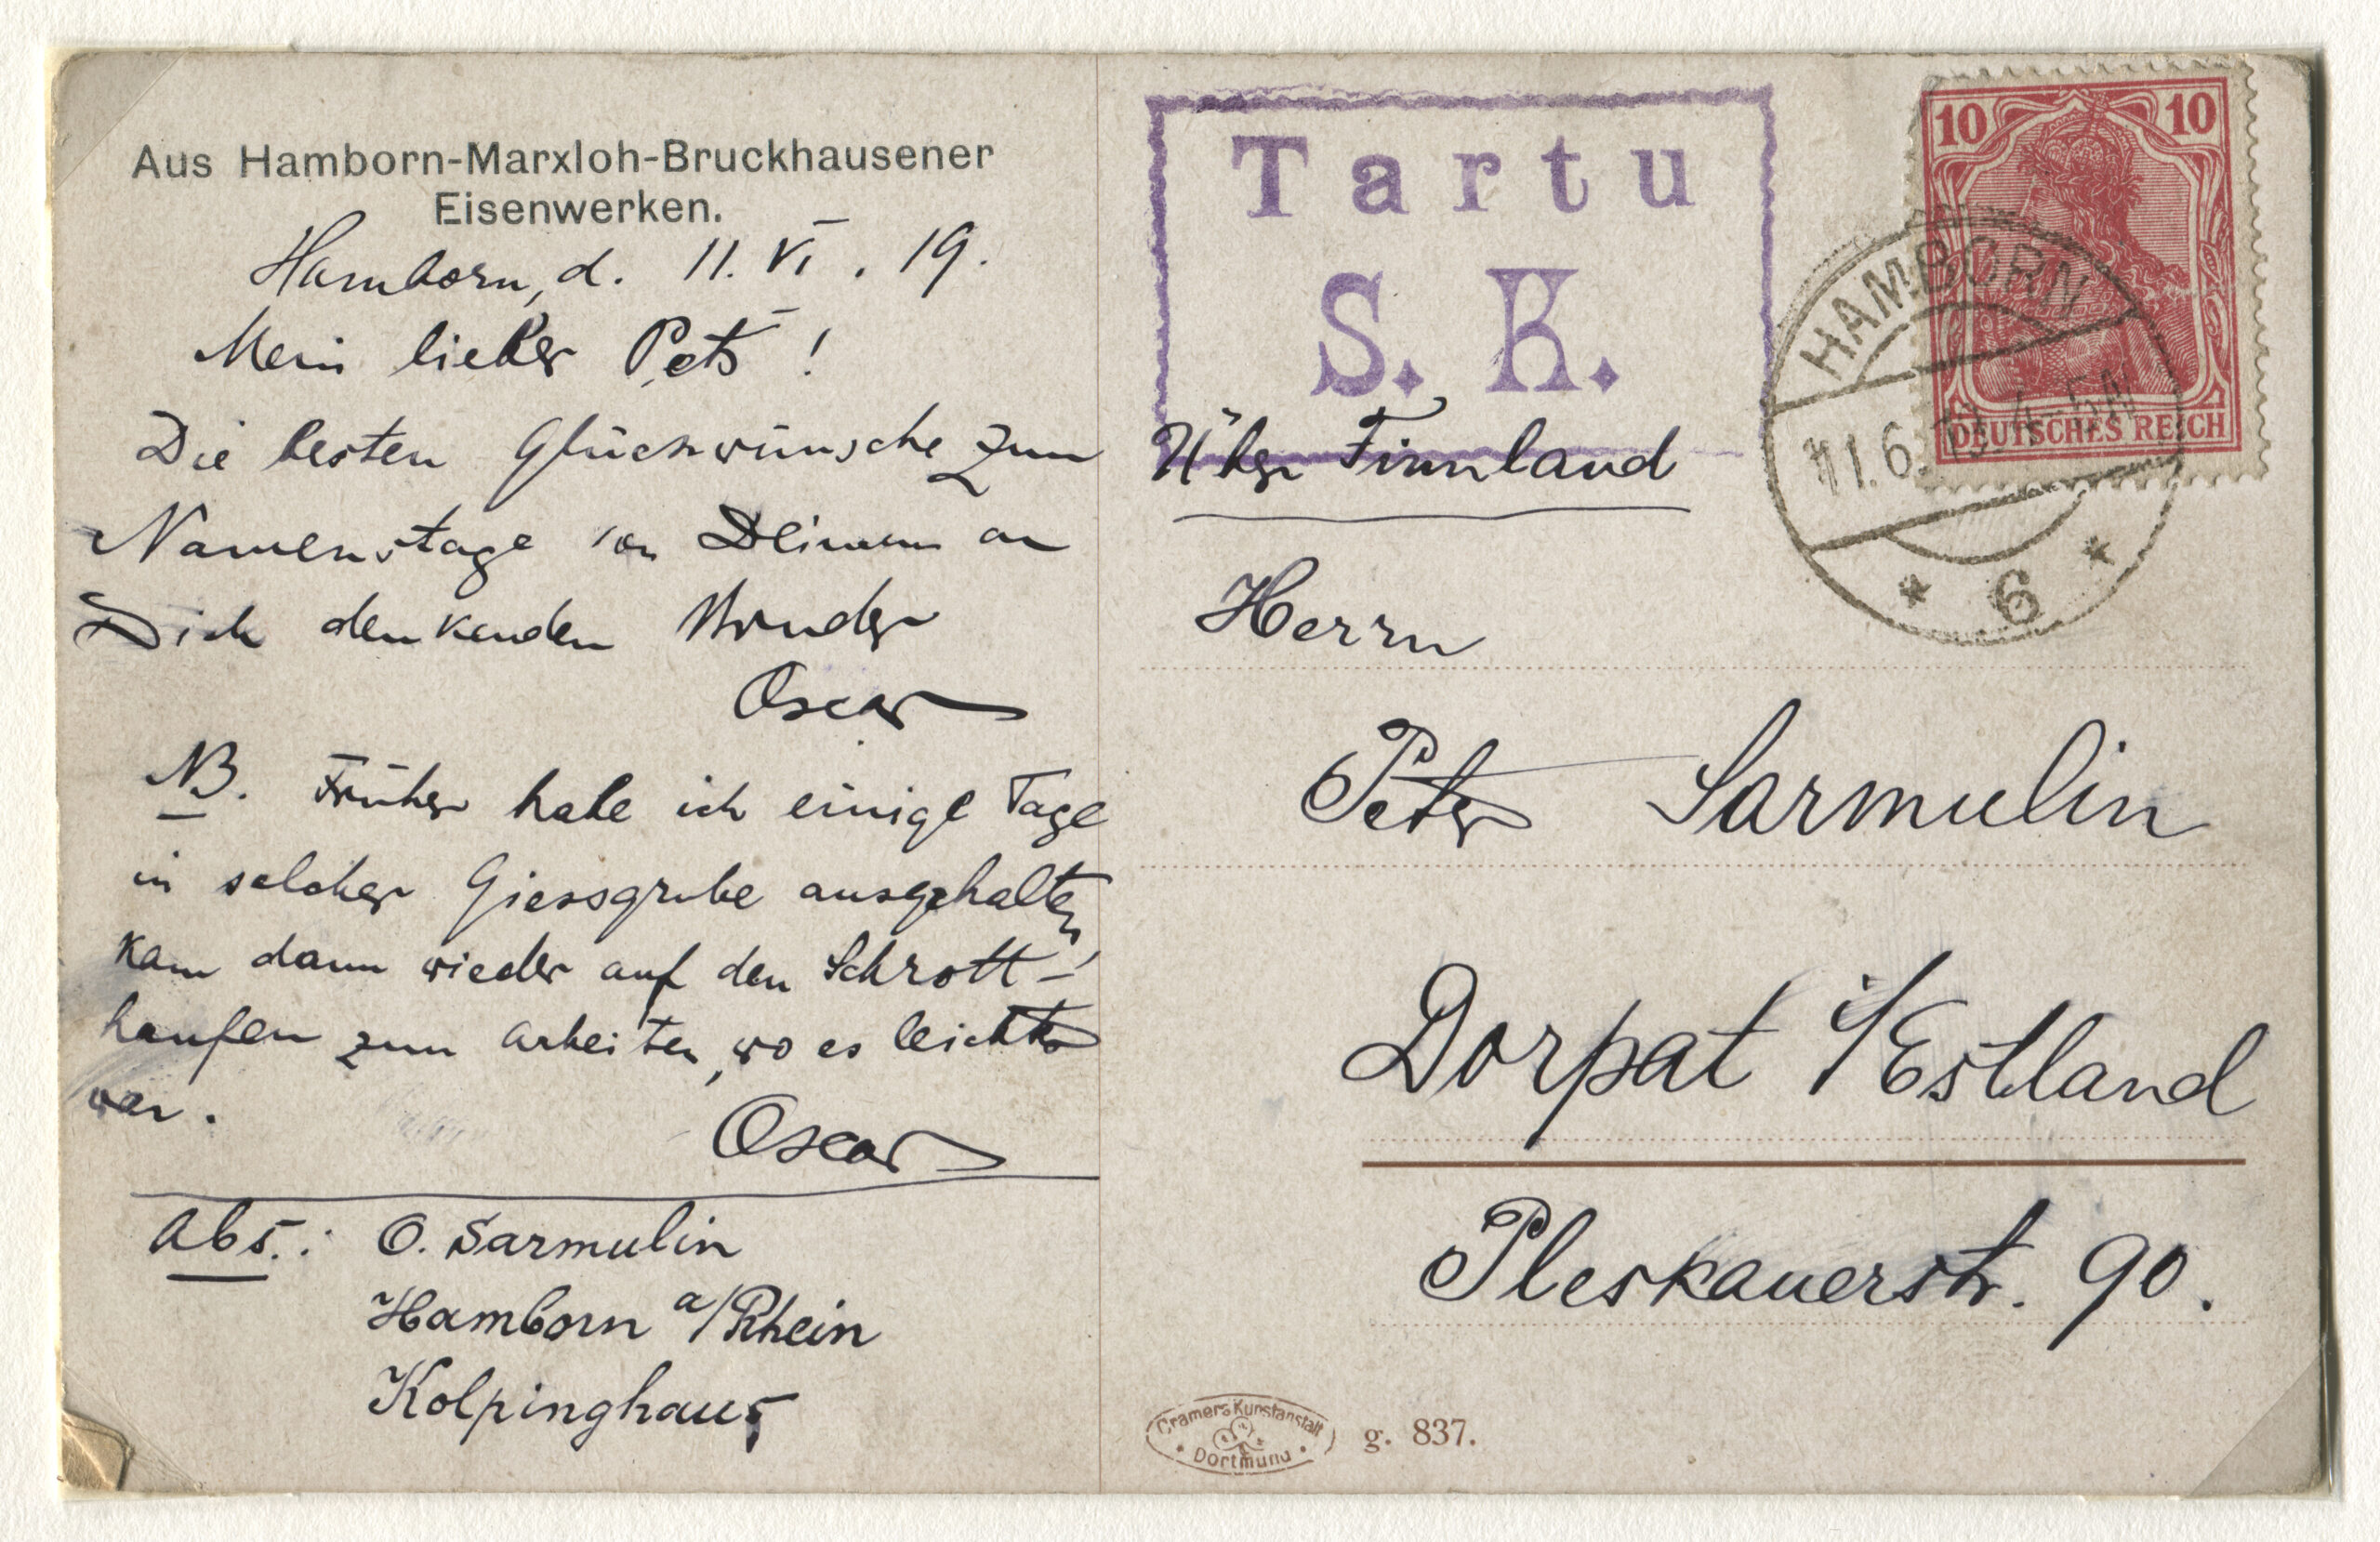 Aus Hamborn-Marxloh-Bruckhausener
Eisenwerken.
Hamborn, d. 11. VI. 19.
Mein lieber Pets!
Die besten Glückwünsche zum
Namenstage von Deinem an
Dich denkenden Bruder
Oscar
NB. Früher habe ich einige Tage
in solcher Giessgrube ausgehalten,
kam dann wieder auf den Schrott-
haufen zum arbeiten, wo es leichter
war.
Oscar
Abs.: O. Sarmulin
Hamborn a/Rhein
Kolpinghaus
Tartu
S. K.
Über Finnland
10 10
DEUTSCHES REICH
HAMBORN
11.6.19. 4-5N
* 6 *
Herrn
Peter Sarmulin
Dorpat i/Estland
Pleskauerstr. 90.
Cramers Kunstanstalt
Dortmund
g. 837.